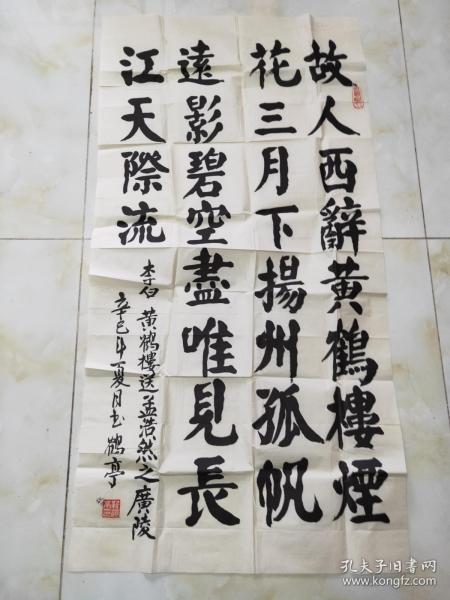 故人西辭黄鶴樓煙
花三月下揚州孤帆
遠影碧空盡唯見長
江天際流
李白 黄鶴樓送孟浩然之廣陵
辛巳年夏月书 鶴亭
孔夫子旧书网
www.kongfz.com